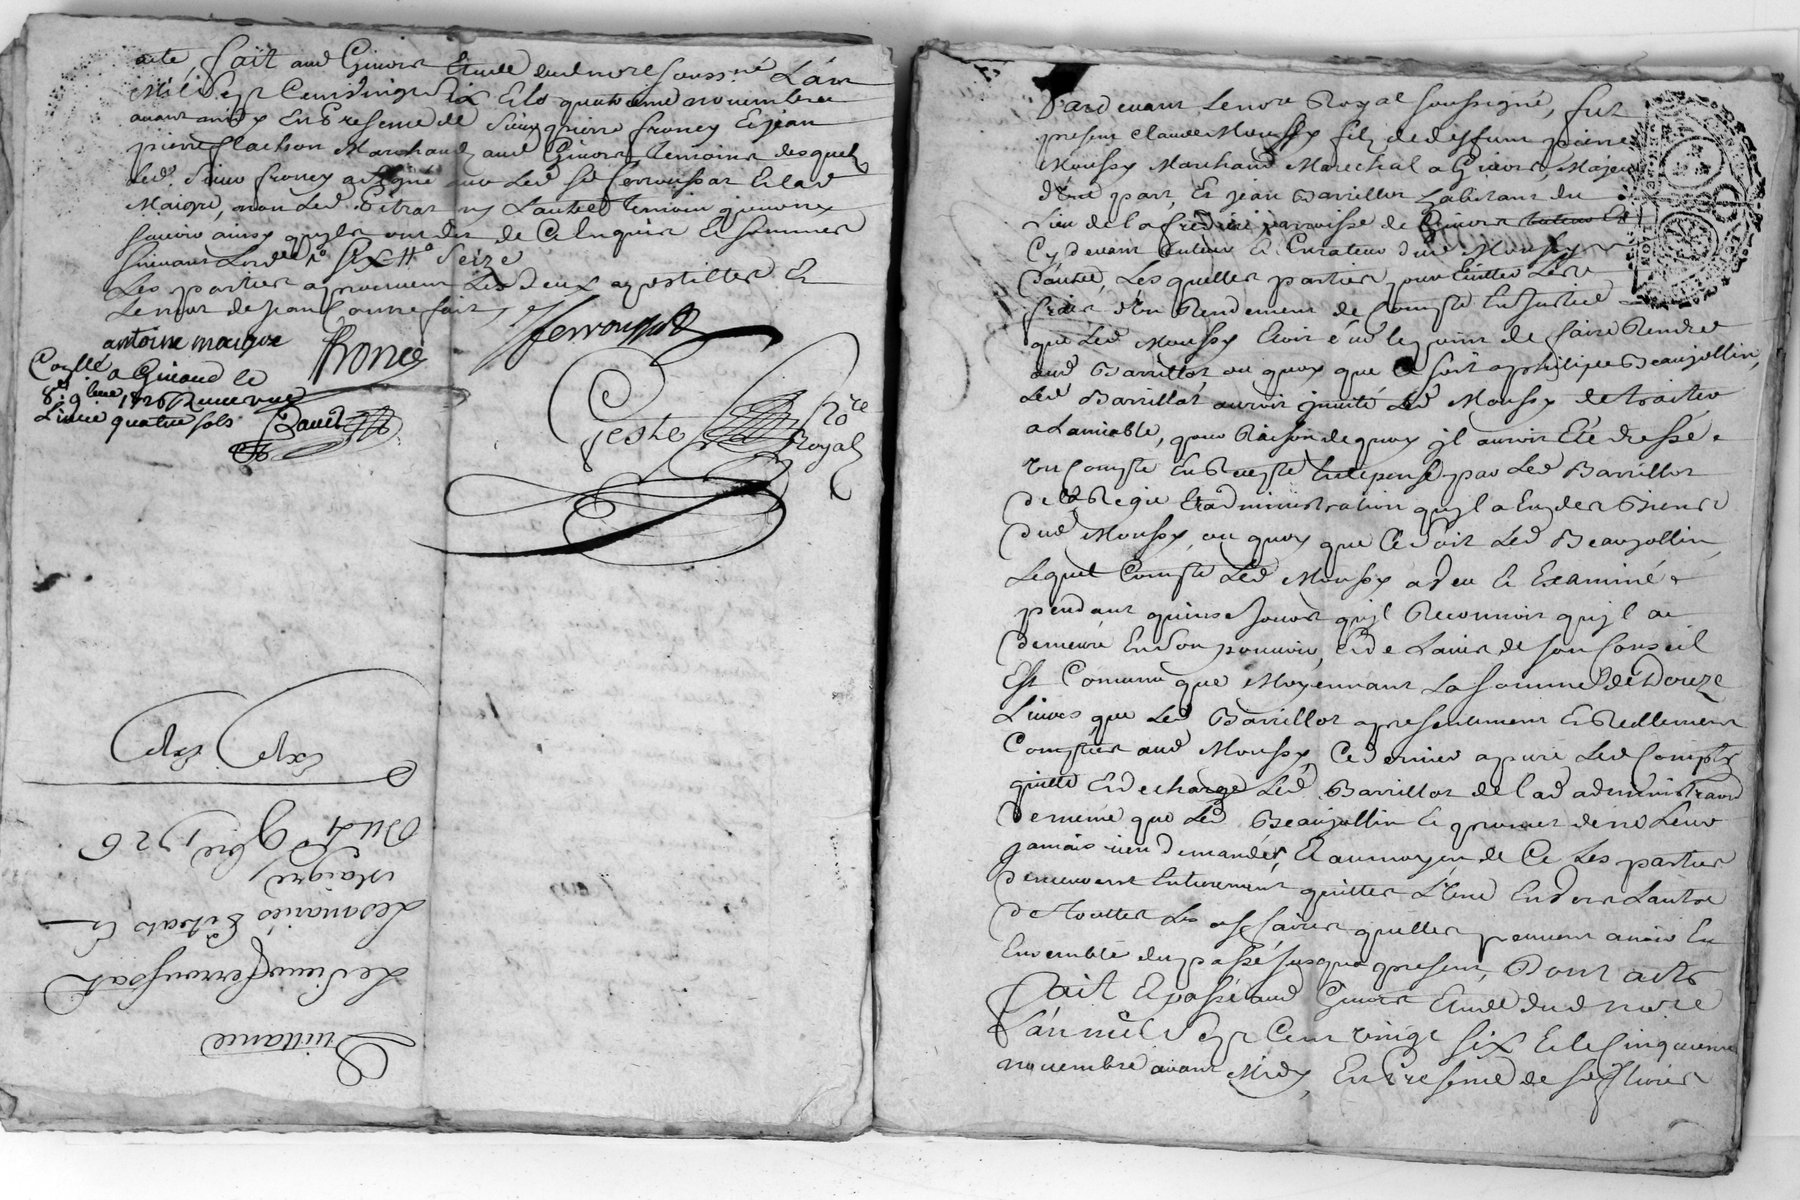 acte, fait aud Givors Etude dud no.re soussné L'an
Mil Sept Cens vingt Six Et le quatrieme novembre
avant midy En Presence de Sieur pierre froncy Et Jean
pierre flachon Marchand aud Givors temoins lesquels
led. Sieur froncy a signé avec Led Sr ferroussat Et lad
Maigre, non Led Vitrat ny Lautre temoin pour ne
scavoir ainsy quils ont dit de Ce Enquis Et sommés
suivant Lord
Les parties approuvent Les deux apostilles Et
Le mot de Jean Comme fait
antoine maigre
froncé
ferroussat
Conllé a Givord le
8e 9bre 1726 Receu une
Livre quatre sols
David
Geste no.re
Royal
Exp Exp
Du 4 9bre 1726
Maigre
Les mariés Vitrat Et
Le Sieur ferroussat
Quittance
Pardevant Le no.re Royal soussigné, fut
present claude Moussy fils de deffunt pierre
Moussy Marchand Marechal a Givors, Majeur
d'une part, Et Jean Barrillot habitant du
Lieu de la freidiere parroisse de Givors
Cy devant tuteur Et Curateur dud Moussy
d'autre, Les quelles parties pour Eviter Les
frais d'un Rendement de Compte En Justice
que Led Moussy Etoit sur le point de faire Rendre
aud Barrillot ou quoy que Ce soit a philipe Beaujollin,
Led Barrillot auroit invité Led Moussy de traiter
a Lamiable, pour Raison de quoy il auroit Eté dressé
un Compte En Recepte Et depense par Led Barrillot
de la Regie Et administration qu'il a Eu des Biens
dud Moussy, ou quoy que Ce soit Led Beaujollin,
Lequel Compte Led Moussy a veu Et Examiné
pendant quinse Jours qu'il Reconnoit qu'il a
demeuré En son pouvoir, Et de L'avis de son Conseil
Est Convenu que Moyennant La somme de Douze
Livres que Led Barrillot a presentement Et Reellement
Comptées aud Moussy, Ce dernier apuré Led Compte
quitte Et decharge Led Barrillot de lad administraon
de meme que Led Beaujollin Et promet de ne Leur
jamais rien demander, Et au moyen de Ce Les parties
demeurent Entierement quittes L'une Envers Lautre
de toutes Les affaires quelles peuvent avoir Eu
Ensemble du passé Jusques a present, Dont acte
fait Et passé aud Givors Etude dud no.re
L'an mil Sept Cent vingt Six Et le Cinquieme
novembre avant Midy, En Presence de Sr